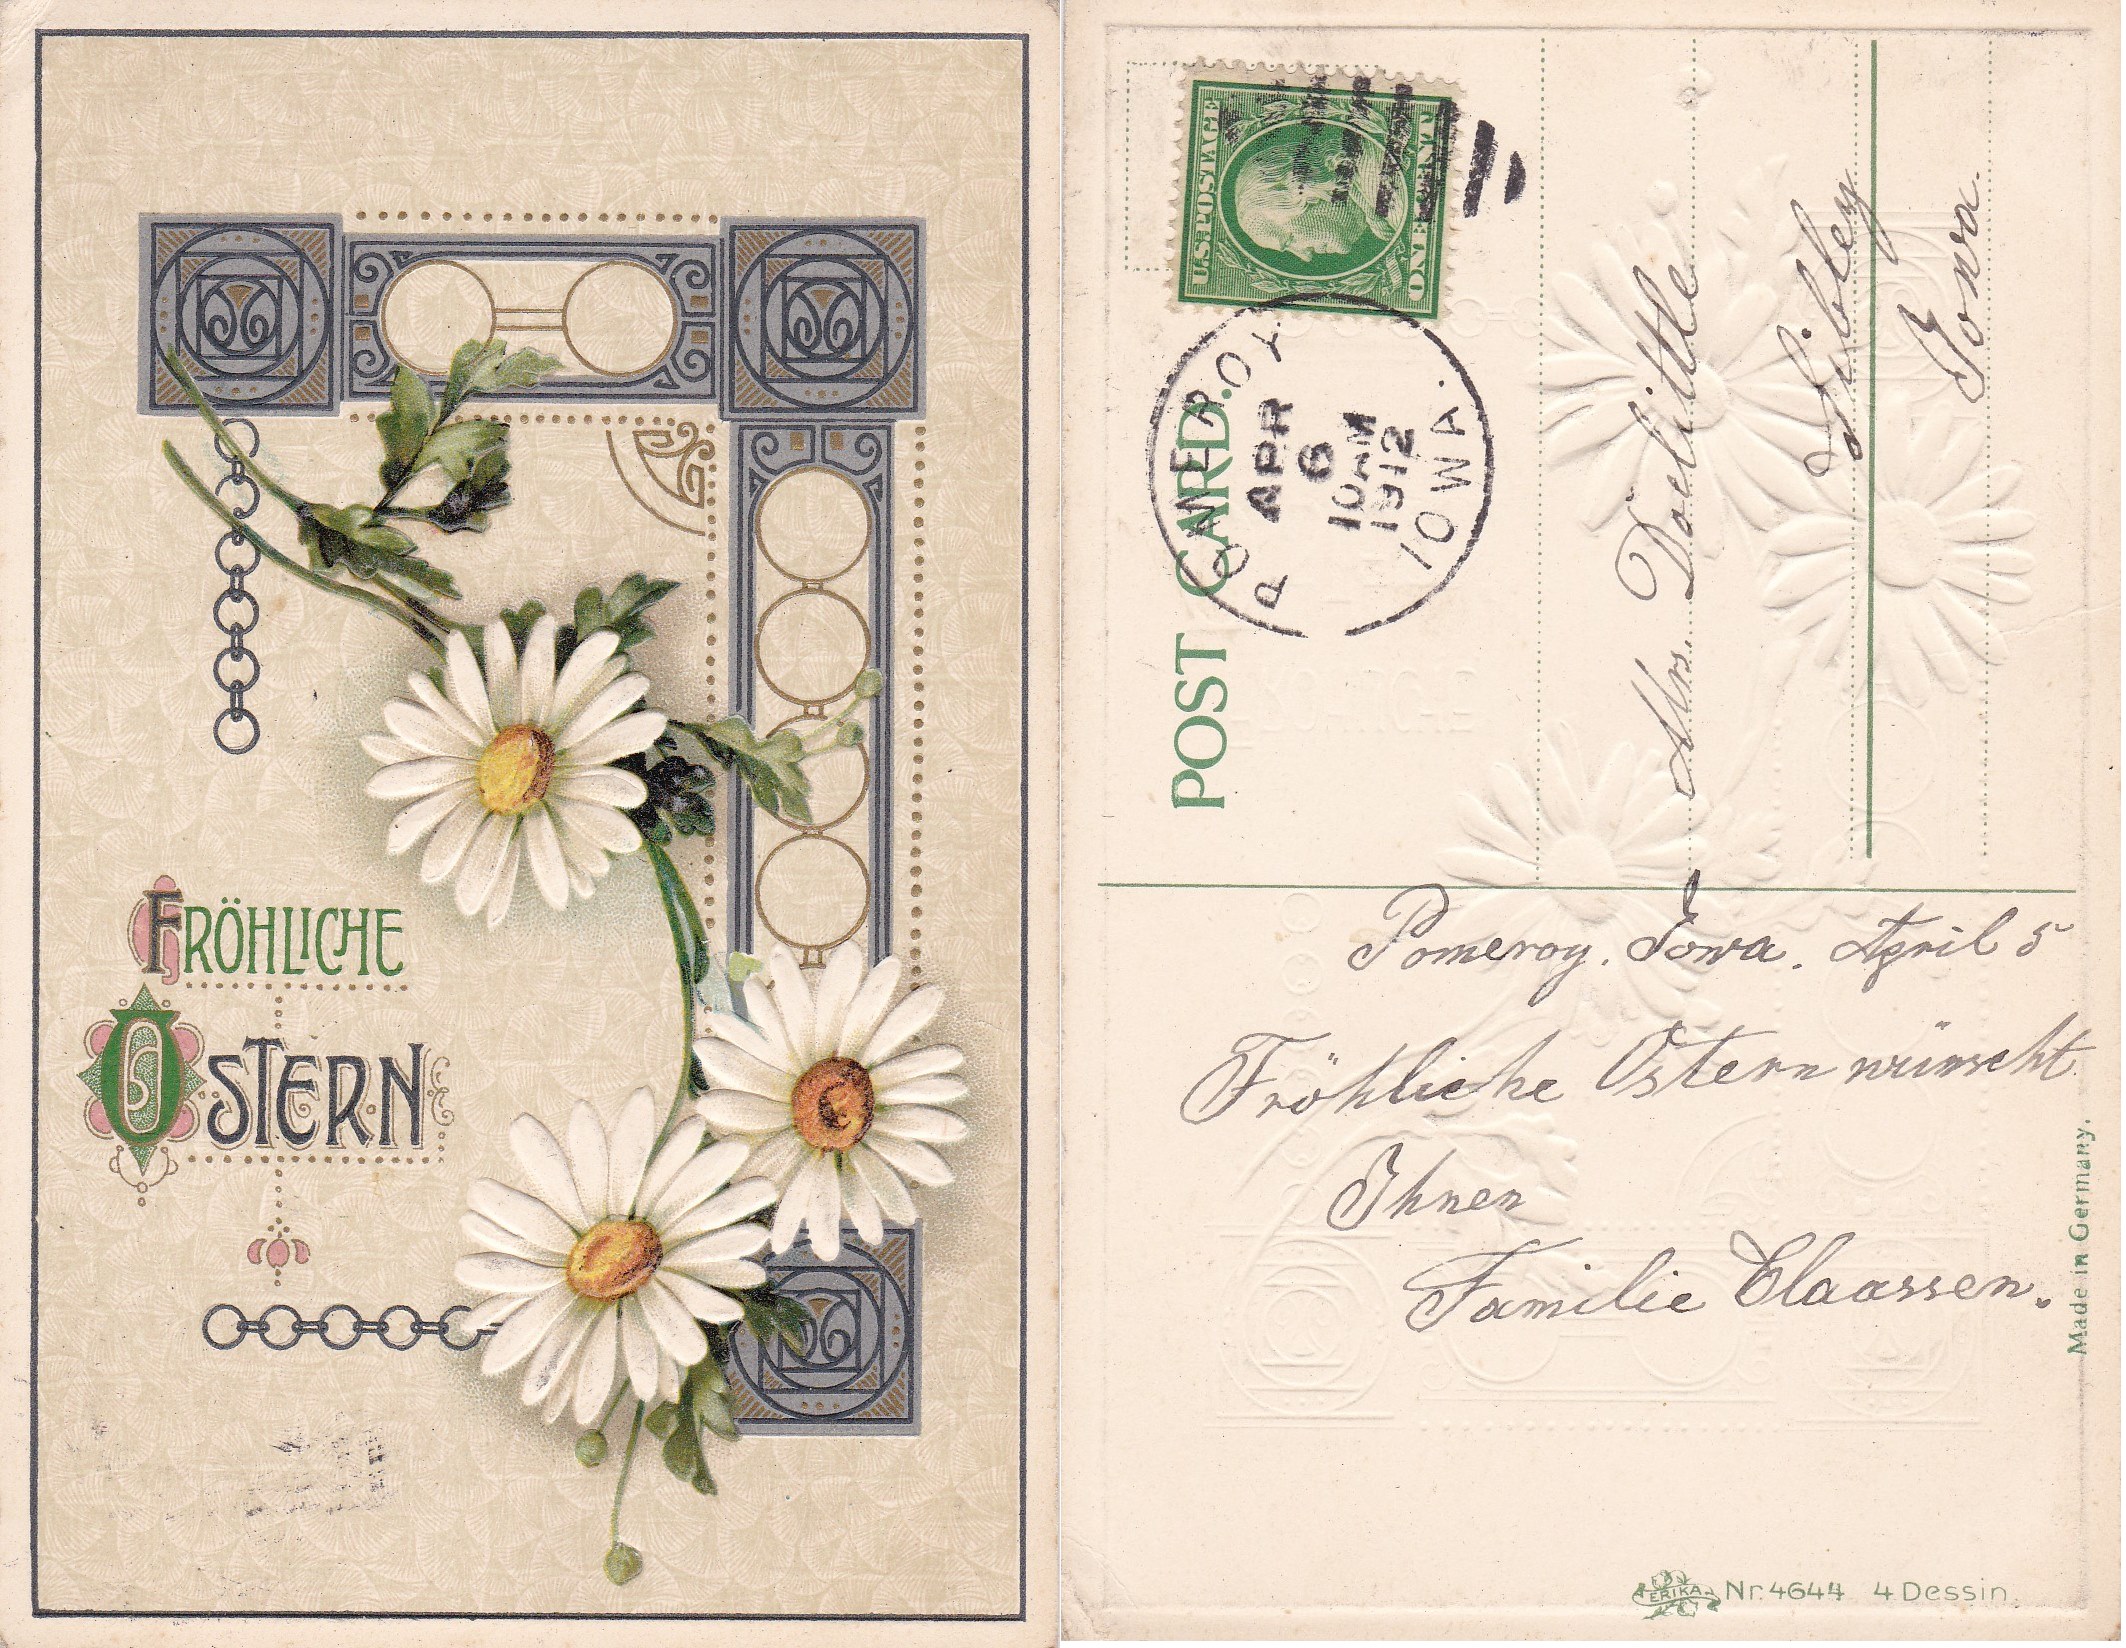 FRÖHLICHE
OSTERN
U.S. POSTAGE
ONE
POST CARD.
POMEROY
APR
6
10 AM
1912
IOWA.
Mrs. Doolittle
Sibley
Iowa.
Pomeroy. Iowa. April 5
Fröhliche Ostern wünscht
Ihnen
Familie Claassen.
Made in Germany.
ERIKA Nr. 4644 4 Dessin.